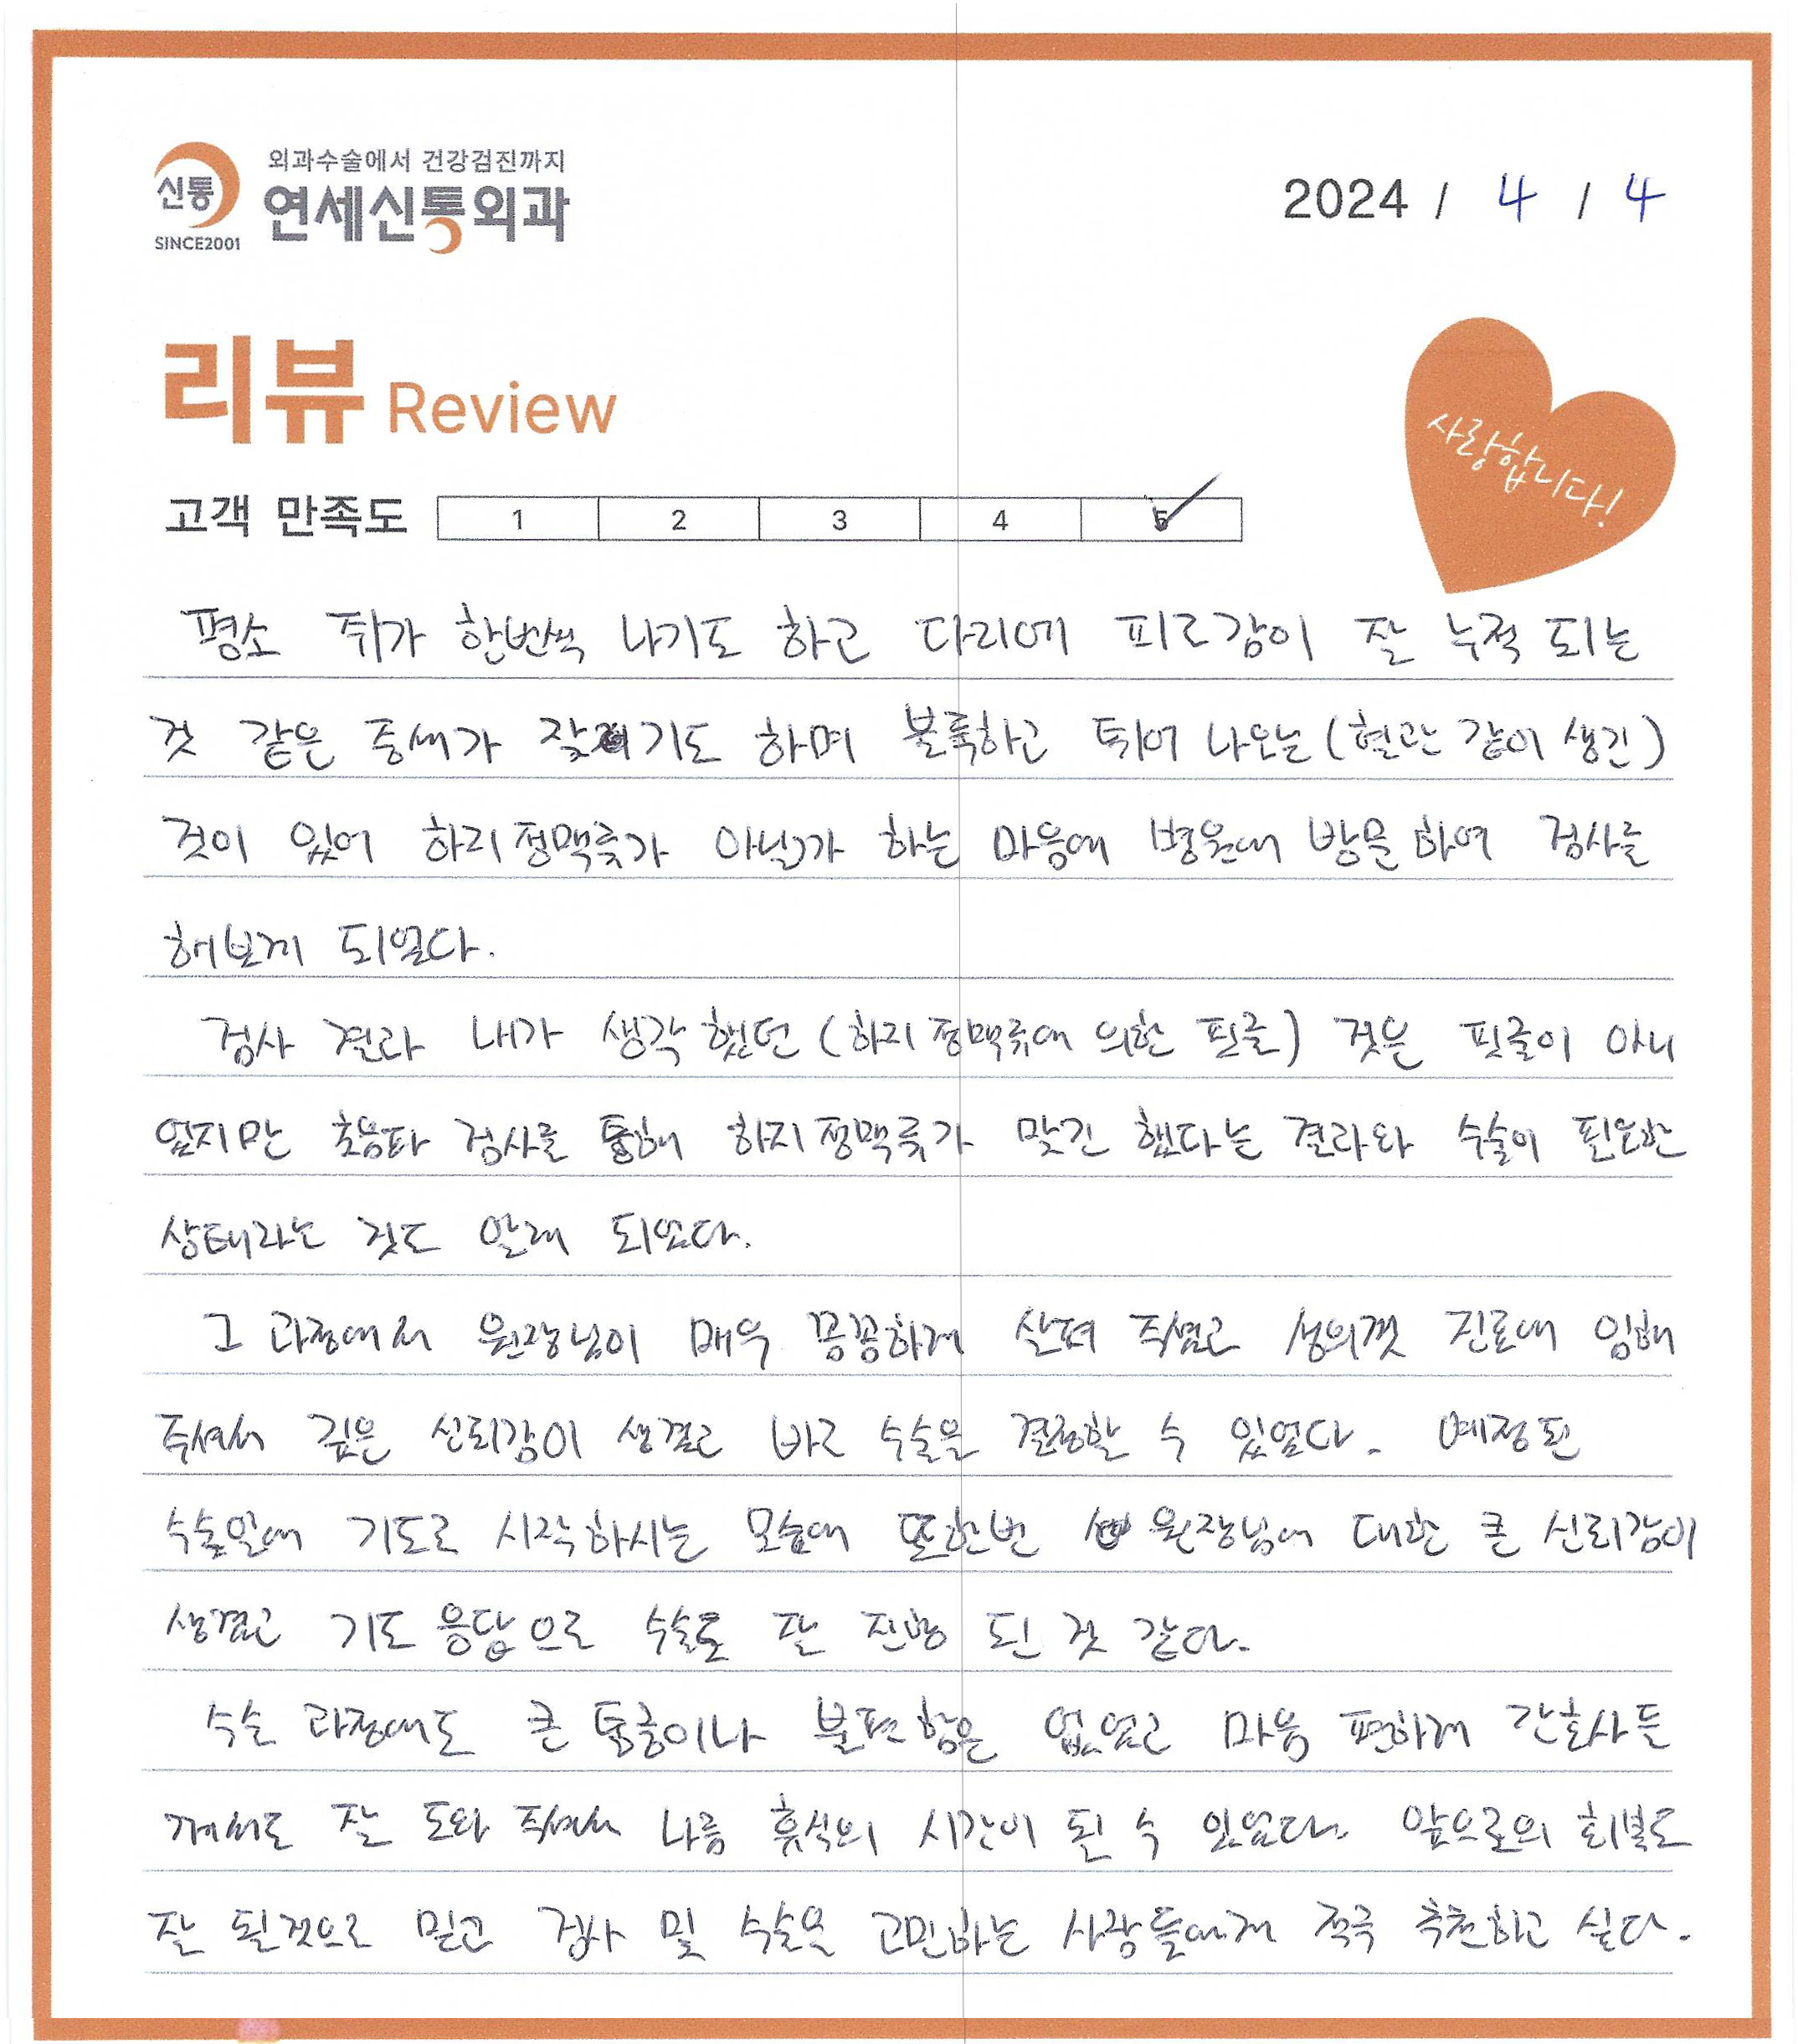 외과수술에서 건강검진까지
신통 연세신통외과
SINCE2001
2024 / 4 / 4
리뷰 Review
사랑합니다!
고객 만족도 1 2 3 4 5
평소 쥐가 한번씩 나기도 하고 다리에 피로감이 잘 누적 되는
것 같은 증세가 잦기도 하며 볼록하고 튀어 나오는 (혈관 같이 생긴)
것이 있어 하지정맥류가 아닌가 하는 마음에 병원에 방문하여 검사를
해보게 되었다.
검사 결과 내가 생각했던 (하지정맥류에 의한 핏줄) 것은 핏줄이 아니
었지만 초음파 검사를 통해 하지정맥류가 맞긴 했다는 결과와 수술이 필요한
상태라는 것도 알게 되었다.
그 과정에서 원장님이 매우 꼼꼼하게 살펴 주셨고 성의껏 진료에 임해
주셔서 깊은 신뢰감이 생겼고 바로 수술을 결정할 수 있었다. 예정된
수술일에 기도로 시작하시는 모습에 또한번 원장님에 대한 큰 신뢰감이
생겼고 기도 응답으로 수술도 잘 진행 된 것 같다.
수술 과정에도 큰 통증이나 불편함은 없었고 마음 편하게 간호사들
께서도 잘 도와 주셔서 나름 휴식의 시간이 될 수 있었다. 앞으로의 회복도
잘 될것으로 믿고 검사 및 수술을 고민하는 사람들에게 적극 추천하고 싶다.